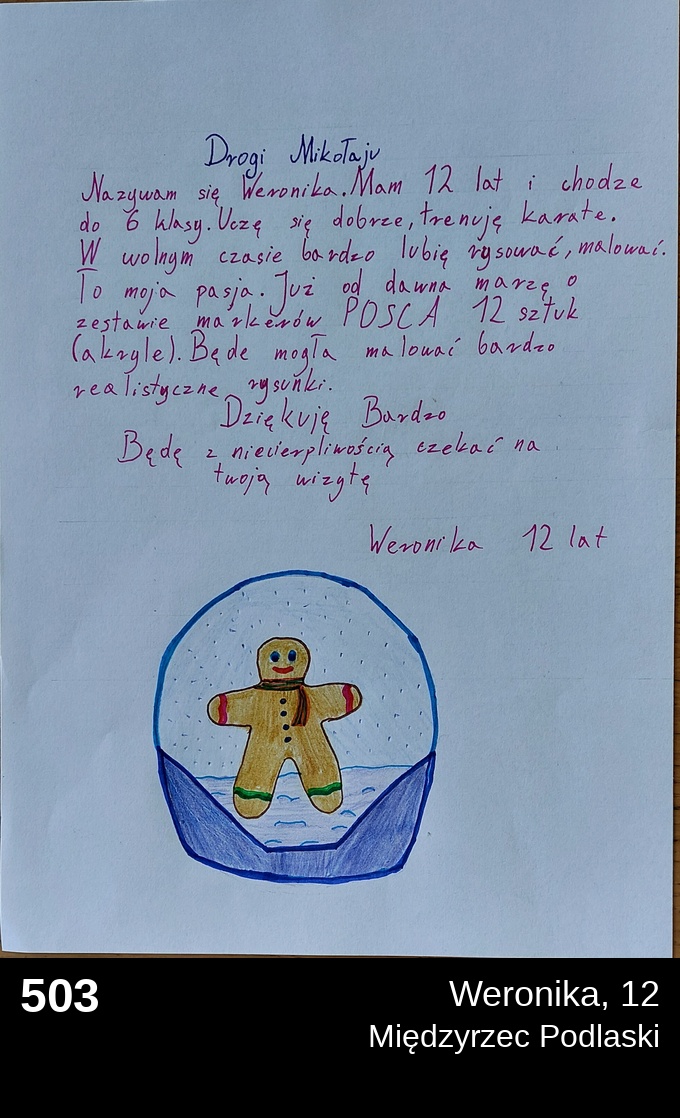 Drogi Mikołaju
Nazywam się Weronika. Mam 12 lat i chodze
do 6 klasy. Uczę się dobrze, trenuję karate.
W wolnym czasie bardzo lubię rysować, malować.
To moja pasja. Już od dawna marzę o
zestawie markerów POSCA 12 sztuk
(akryle). Będe mogła malować bardzo
realistyczne rysunki.
Dziękuję Bardzo
Będę z niecierpliwością czekać na
twoją wizytę
Weronika 12 lat
503
Weronika, 12
Międzyrzec Podlaski